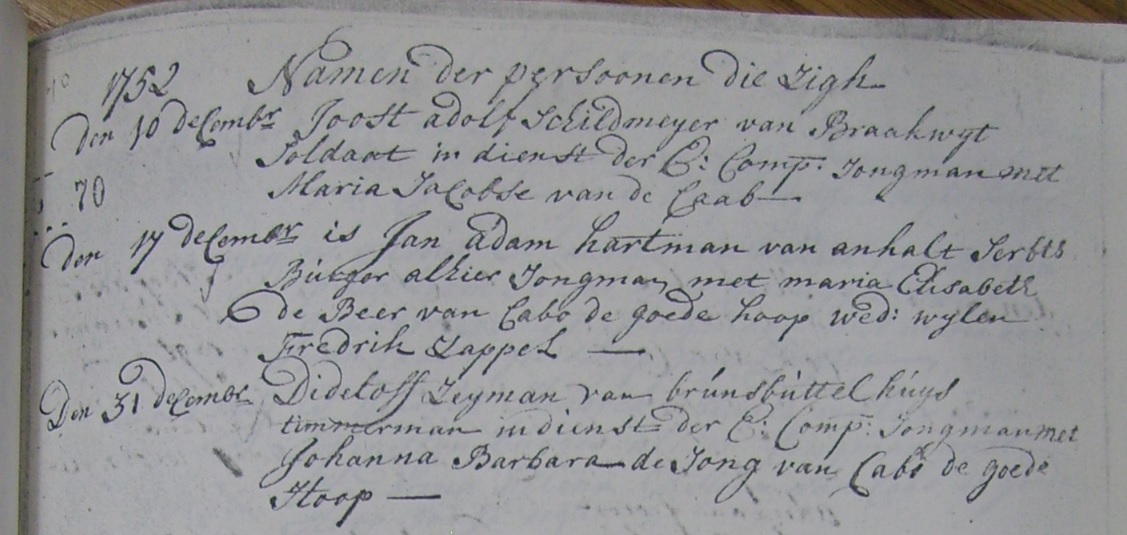 1752 Namen der persoonen die zigh
Den 10 deCembr Joost adolf Schildmeyer van Braakwyt
Soldaat in dienst der E: Comp: Jongman met
70 Maria JaCobse van de Caab —
Den 17 deCembr is Jan adam hartman van anhalt Serbts
Burger alhier Jongman met maria Elisabeth
de Beer van Cabo de goede hoop wed: wylen
Fredrik Zappel —
Den 31 deCembr Dideloff Zeyman van brunsbuttel huys
timmerman in dienst der E: Comp: Jongman met
Johanna Barbara de Jong van Cabo de goede
Hoop —